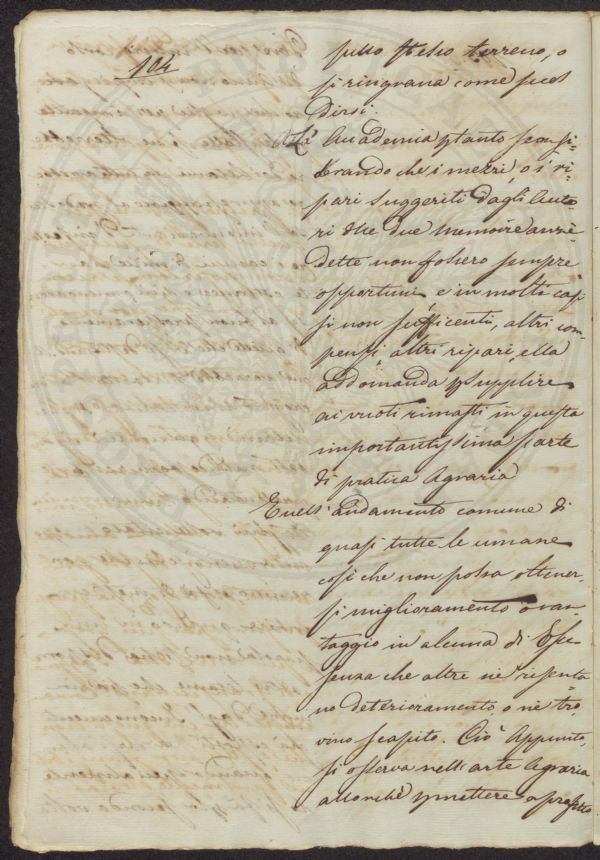 104
sullo stesso terreno, o
si ringrana come suol
dirsi.
L'Accademia ptanto sem
brando che i mezzi, o i ri-
pari suggeriti dagli Auto-
ri delle due memorie anzi-
dette non fossero sempre
opportuni, e in molti casi
si non sufficenti, altri com-
pensi, altri ripari, ella
addomanda p supplire
ai vuoti rimasti in questa
importantissima parte
di pratica Agraria
È nell'andamento comune di
quasi tutte le umane
cose che non possa ottener-
si miglioramento o van-
taggio in alcuna di esse
senza che altre ne risenta-
no deterioramento, o ne tro-
vino scapito. Ciò Appunto,
si osserva nell'arte Agraria
allorchè p mettere a profitto